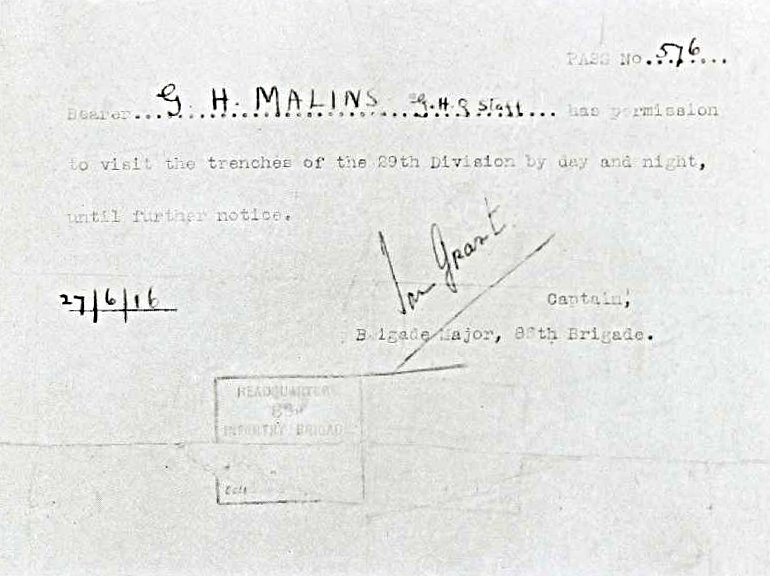 PASS No....576....
Bearer...G. H. MALINS G.H.Q Staff... has permission
to visit the trenches of the 29th Division by day and night,
until further notice.
Grant
27/6/16
Captain,
Brigade Major, 88th Brigade.
HEADQUARTERS
INFANTRY BRIGADE